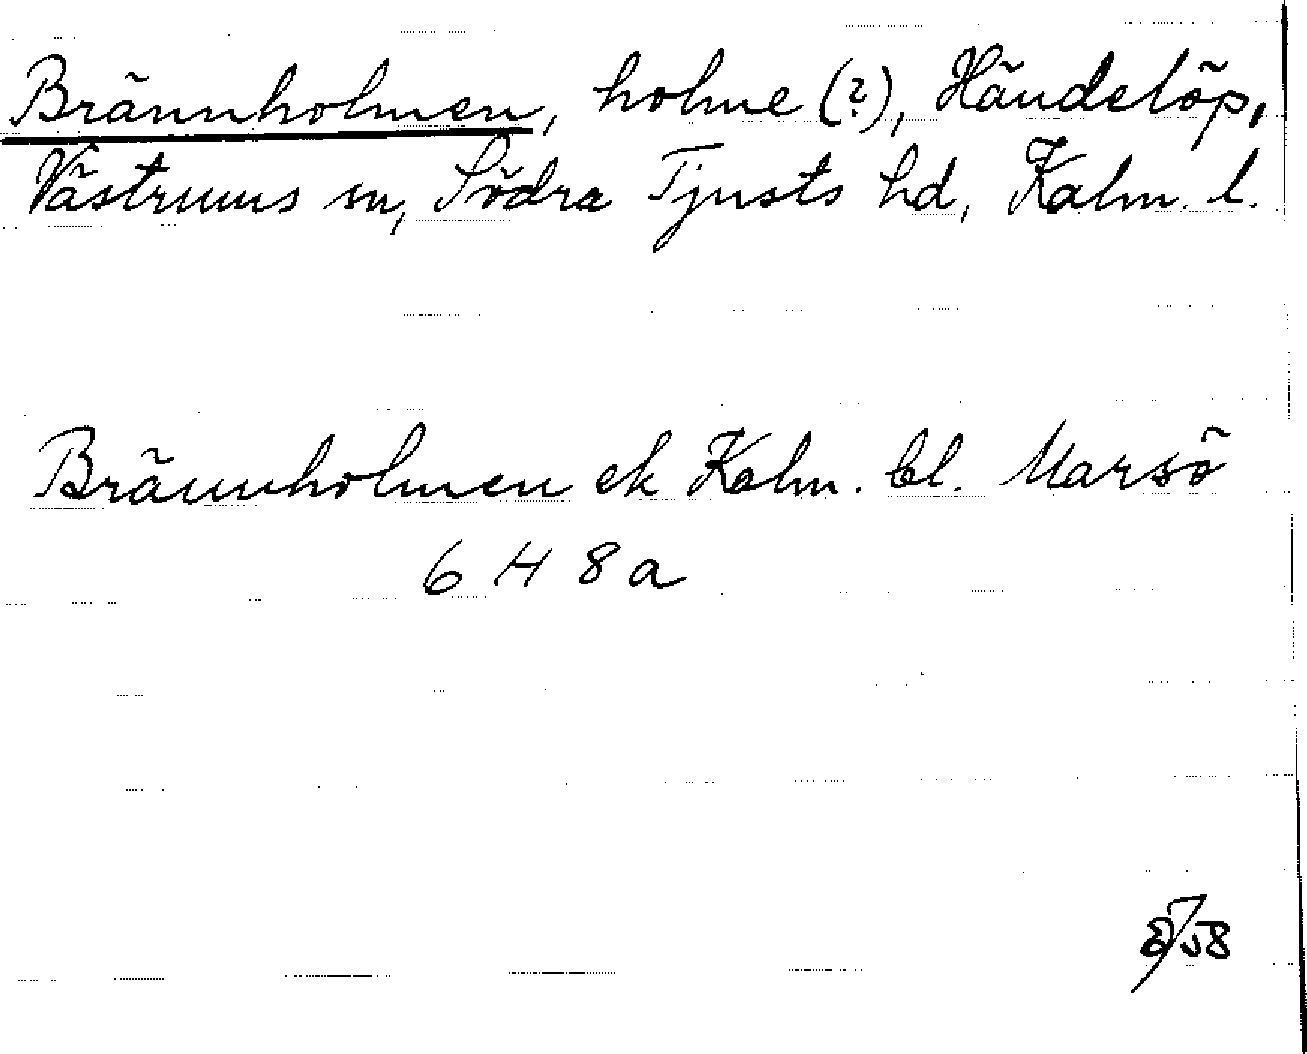 Brännholmen, holme (?), Händelöp,
Västrums sn, Södra Tjusts hd, Kalm. l.
Brännholmen ek Kalm. bl. Marsö
6 H 8 a